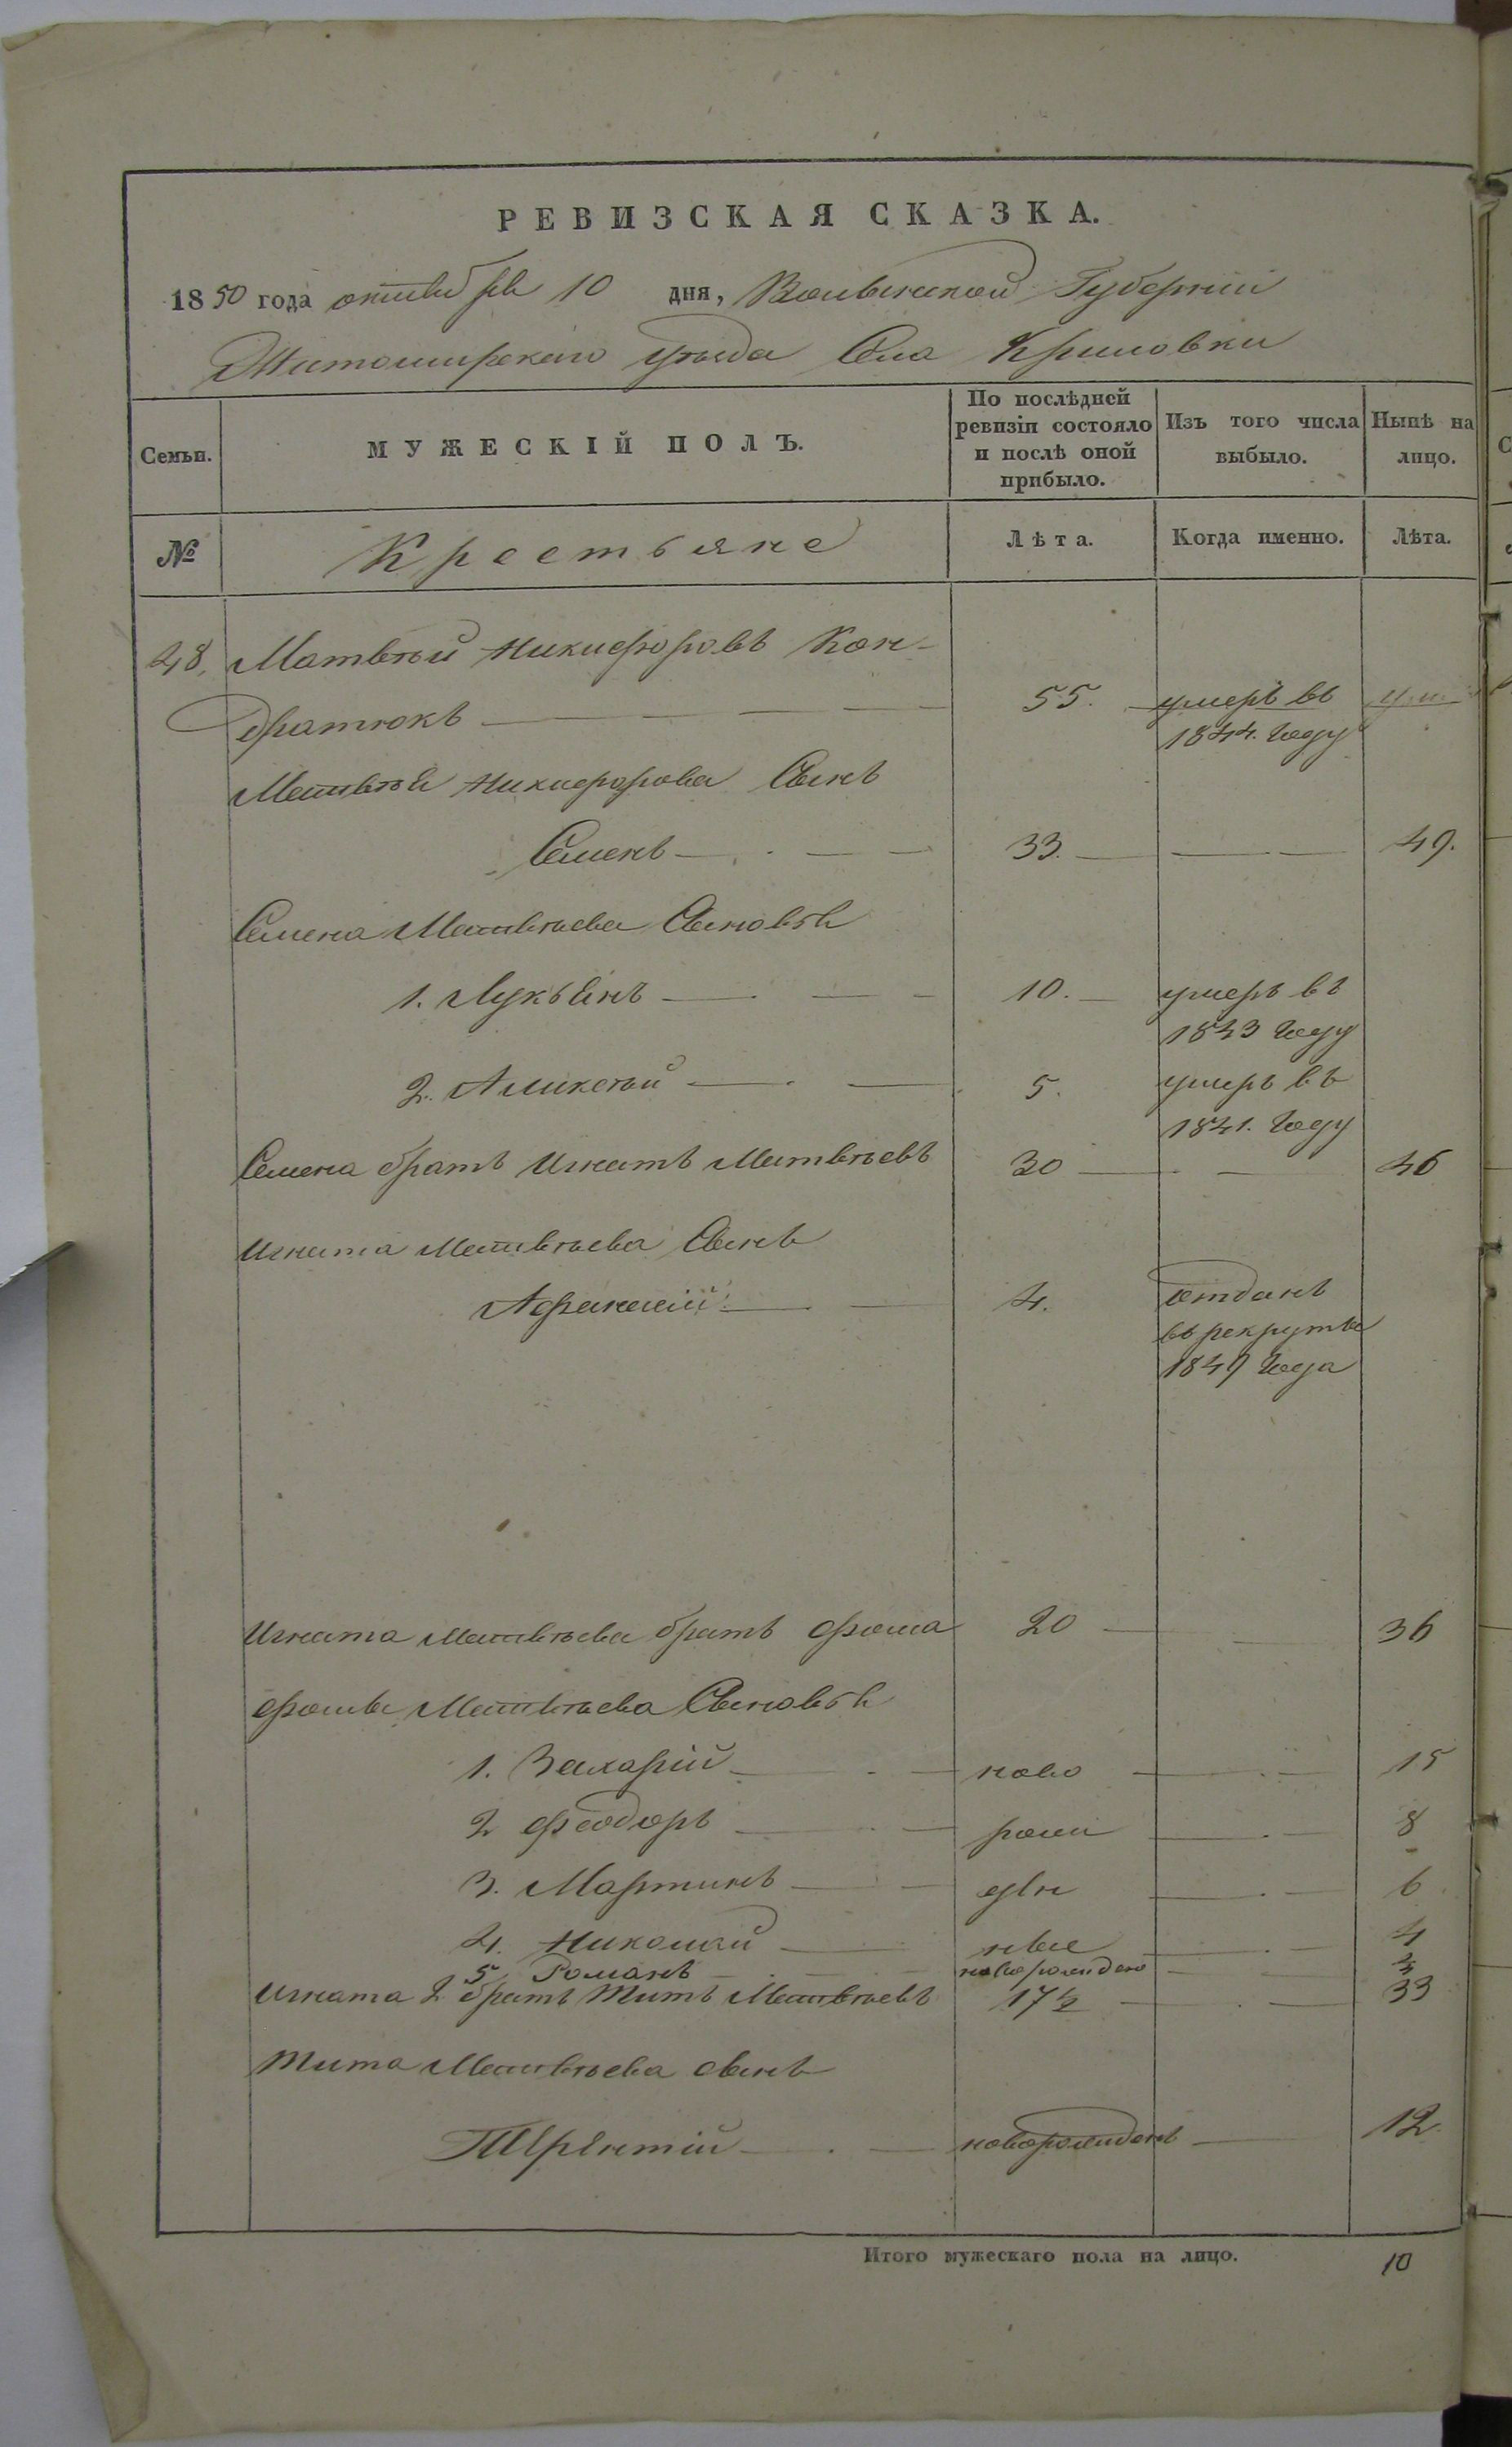 РЕВИЗСКАЯ СКАЗКА.
1850 года октября 10 дня, Волынской Губерніи
Житомирскаго уѣзда Села Криловки
Семьи. МУЖЕСКІЙ ПОЛЪ. По послѣдней ревизіи состояло и послѣ оной прибыло. Изъ того числа выбыло. Нынѣ на лицо.
№ Крестьяне Лѣта. Когда именно. Лѣта.
48. Матвѣй Никифоровъ Кон-
дратюкъ 55. умеръ въ
1844. году
Матвѣя Никифорова Сынъ
Семенъ 33. 49.
Семена Матвѣева Сыновья
1. Лукьянъ 10. умеръ въ
1843 году
2. Аликсѣй 5. умеръ въ
1841. году
Семена братъ Игнатъ Матвѣевъ 30 46
Игната Матвѣева Сынъ
Афанасій 4. отданъ
въ рекруты
1849 года
Игната Матвѣева братъ Фома 20 36
Фомы Матвѣева Сыновья
1. Захарій ново 15
2 Феодоръ рож 8
3. Мартинъ де 6
4. Николай ные 4
5. Романъ новорожденъ
Игната 2 братъ Титъ Матвѣевъ 17½ 33
Тита Матвѣева сынъ
Терентій новорожденъ 12.
Итого мужескаго пола на лицо. 10